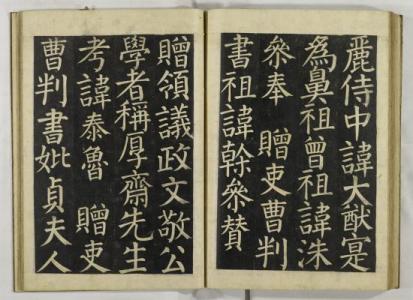 麗侍中諱大猷寔
為鼻祖曾祖諱洙
叅奉 贈吏曹判
書祖諱幹叅贊
贈領議政文敬公
學者稱厚齋先生
考諱泰魯 贈吏
曹判書妣貞夫人